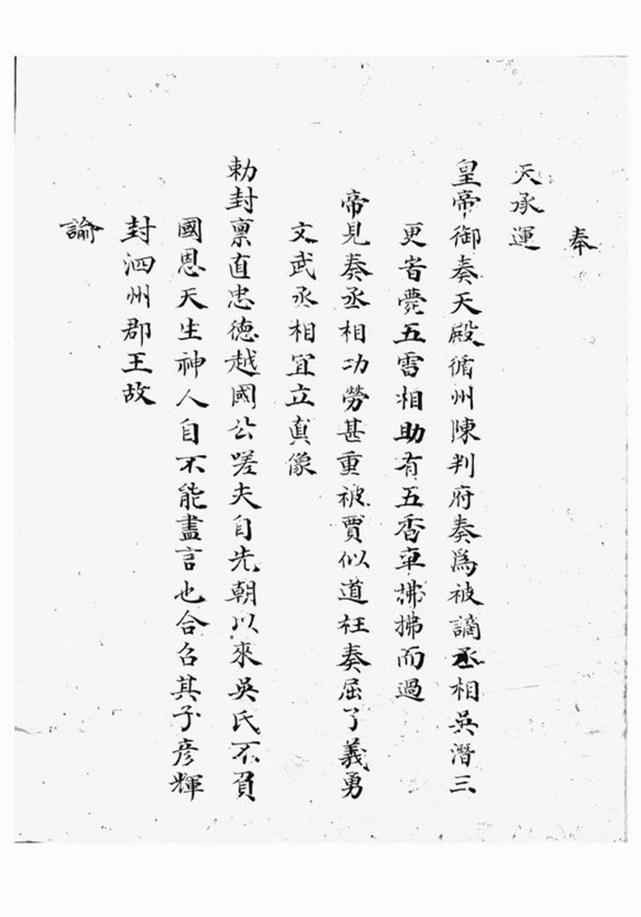 奉
天承運
皇帝御奏天殿循州陳判府奏爲被謫丞相吳潛三
更省薨五雲相助有五香車拂拂而過
帝見奏丞相功勞甚重被賈似道枉奏屈了義勇
文武丞相宜立眞像
勅封禀直忠德越國公嗟夫自先朝以來吳氏不負
國恩天生神人自不能盡言也合召其子彦輝
封泗州郡王故
諭